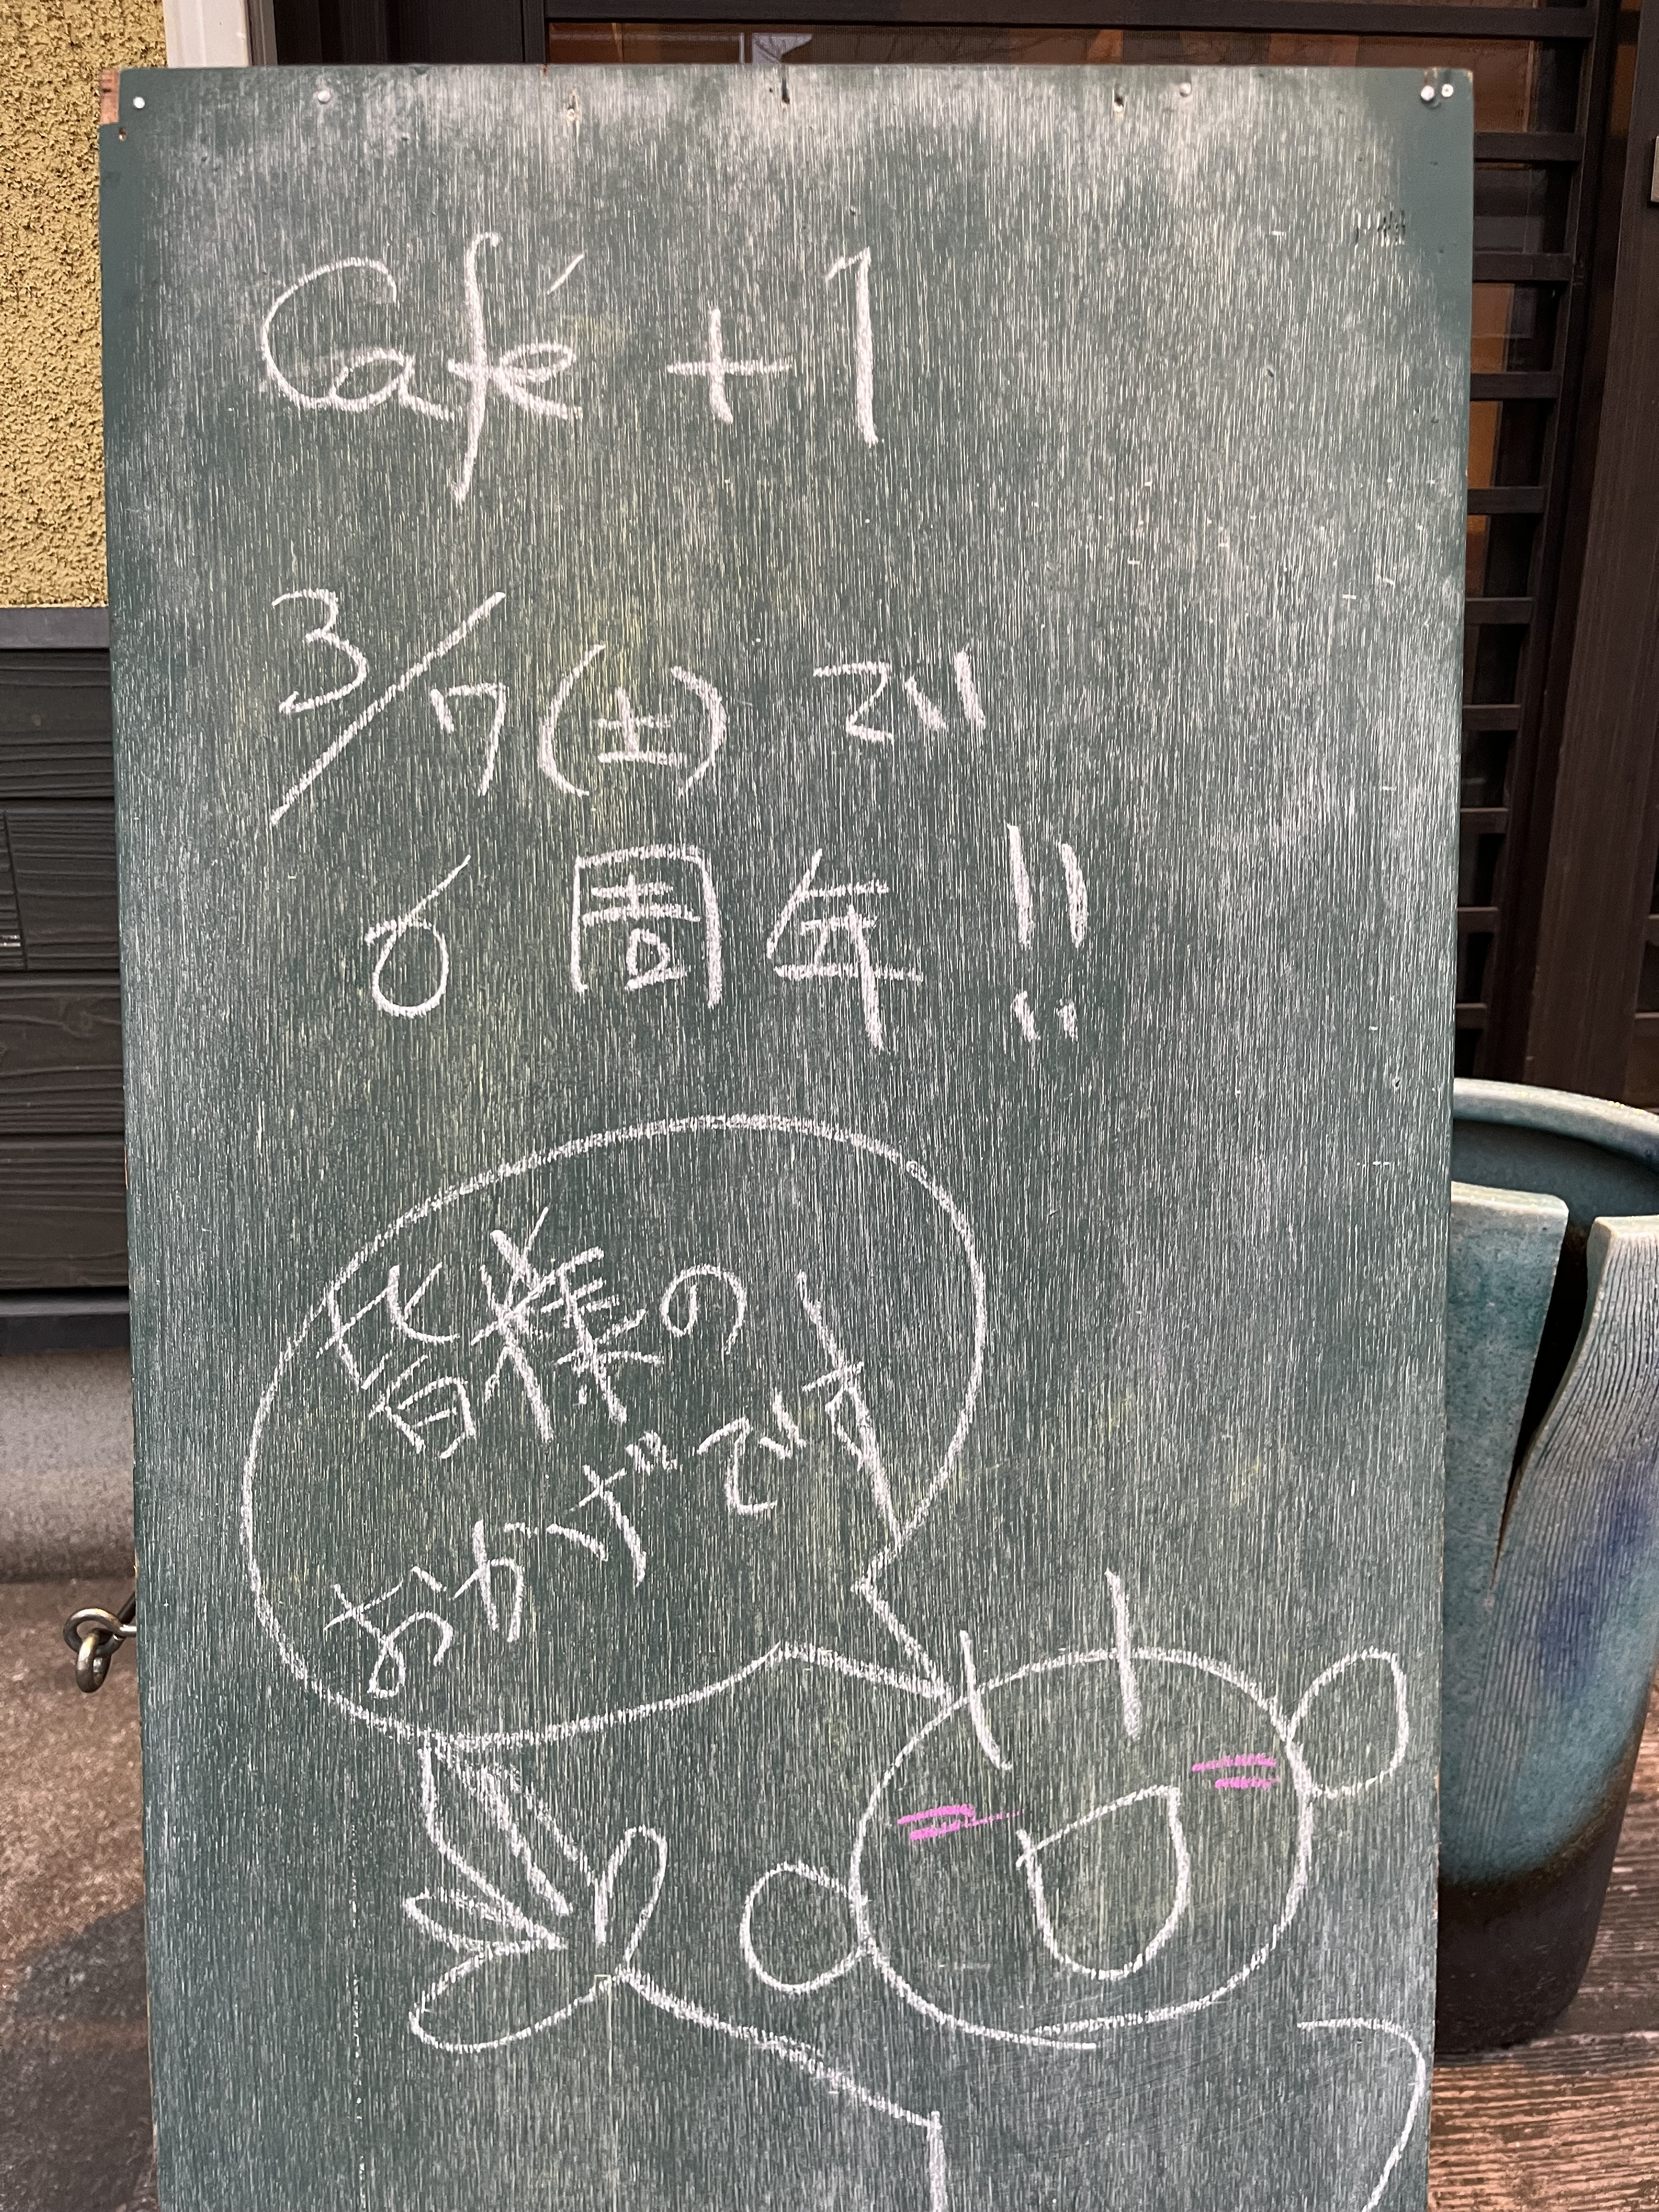 Café +1
3/7(土)で
6周年!!
皆様の
おかげです